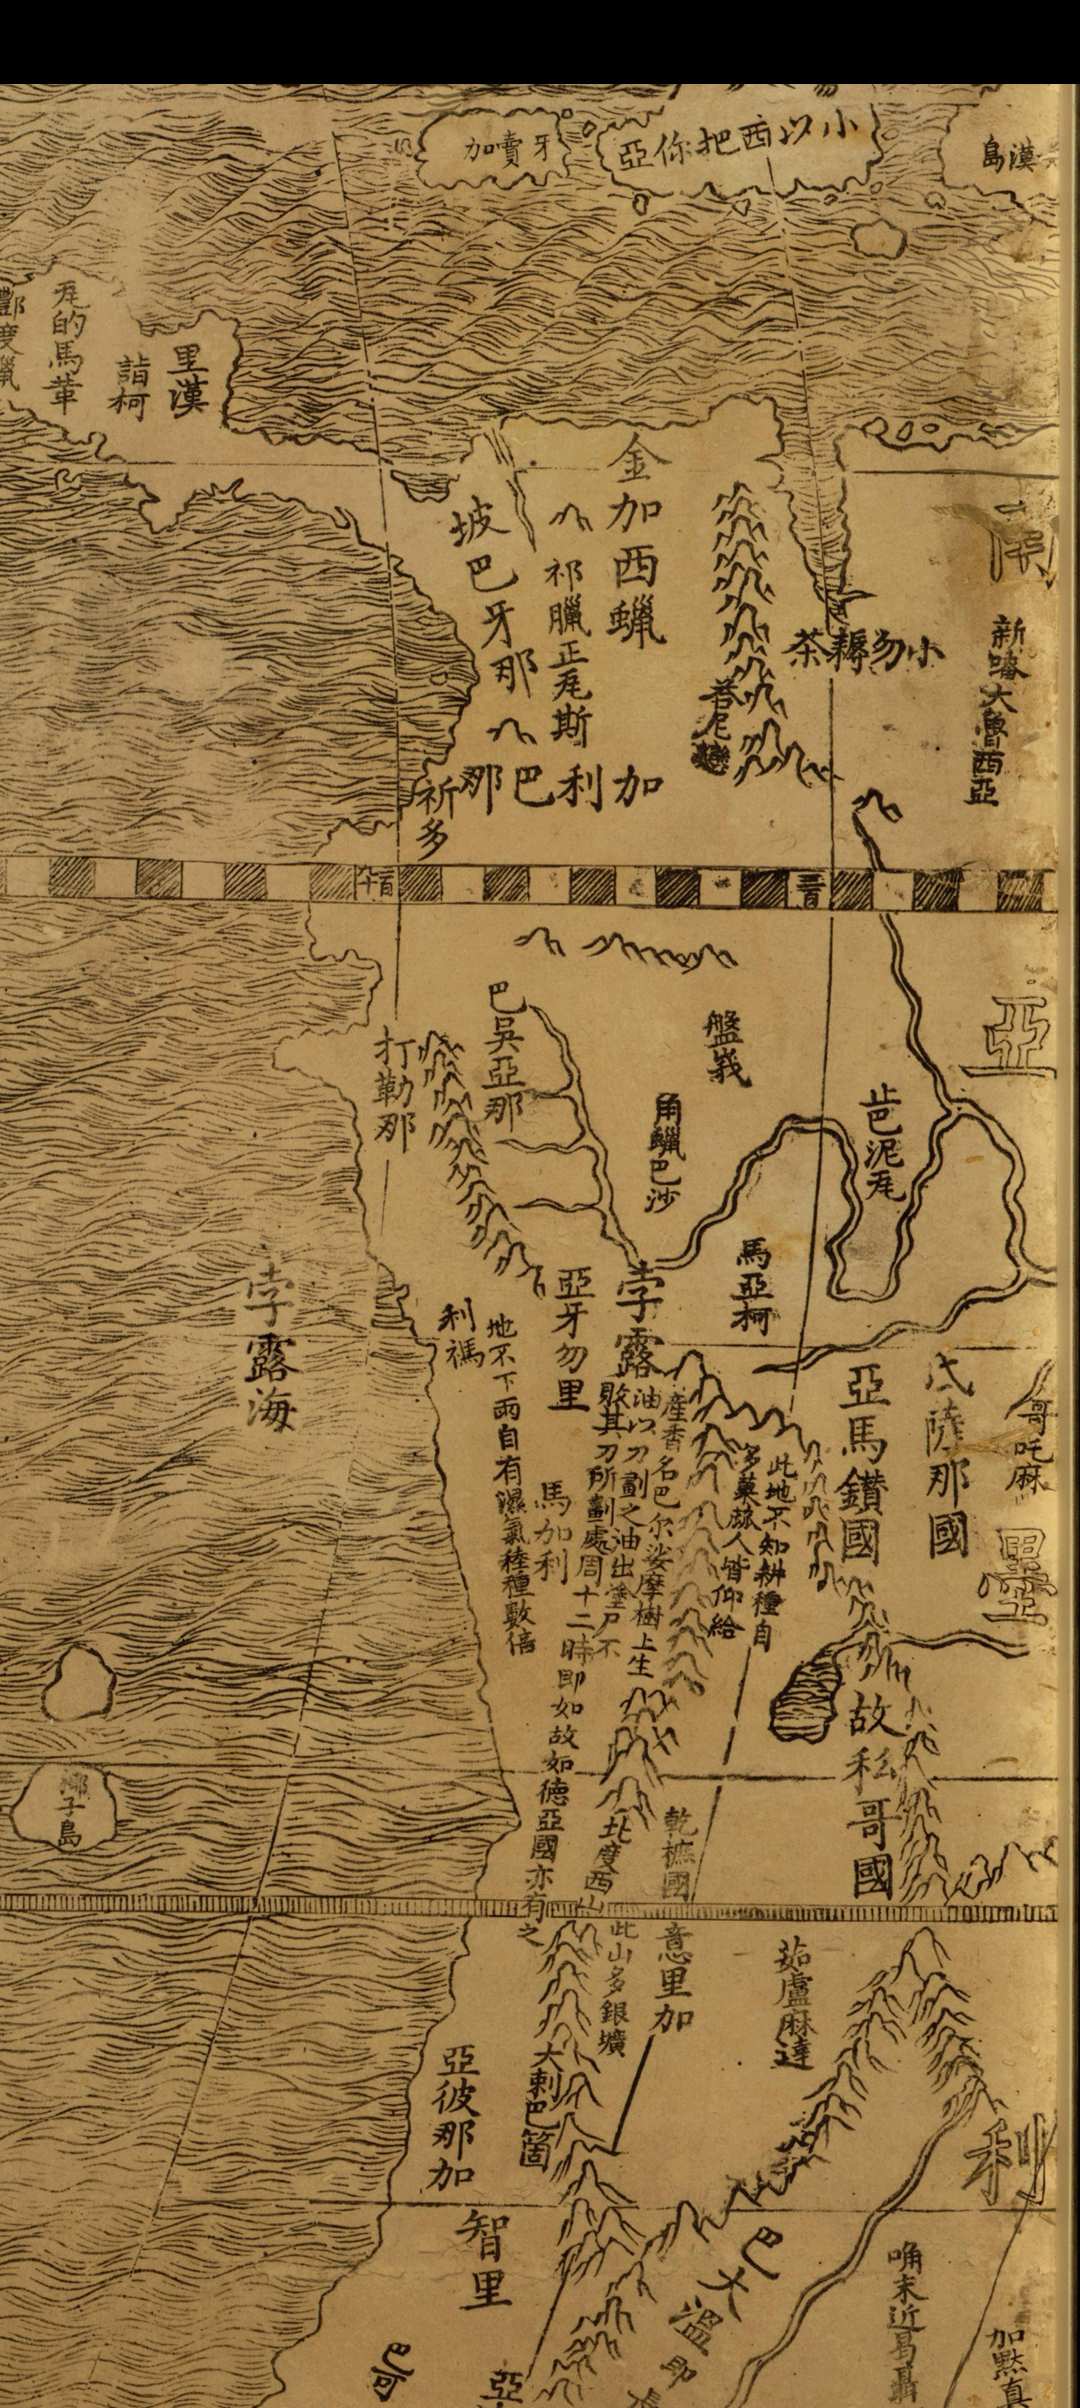 牙賣加
小以西把你亞
漢島
里漢
詣柯
金加西蠟
坡巴牙那
祁臘正𡱝斯
小勿耨茶
新㗭大魯西亞
加利巴那
祈多
亞
巴吳亞那
盤峩
角蠟巴沙
打勒那
馬亞柯
孛露海
孛露
亞牙勿里
利禡
地不下雨自有濕氣種種數倍
產香名巴尔娑摩樹上生
油以刀劃之油出塗尸不
敗其刀所劃處周十二時即如故如德亞國亦有之
此地不知耕種自
多菓蓏人皆仰給
亞馬鑽國
氐薩那國
哥吒麻
墨
馬加利
故私哥國
椰子島
北度西山
此山多銀壙
意里加
茹盧麻達
利
大剌巴箇
亞彼那加
智里
巴大溫
加黙真